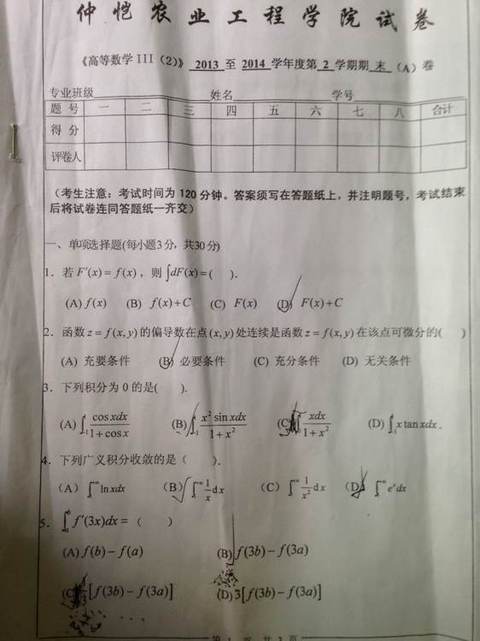 仲恺农业工程学院试卷
《高等数学 III（2）》 2013 至 2014 学年度第 2 学期期 末 （A）卷
专业班级 姓名 学号
题 号 一 二 三 四 五 六 七 八 合计
得 分
评卷人
（考生注意：考试时间为 120 分钟。答案须写在答题纸上，并注明题号，考试结束
后将试卷连同答题纸一齐交）
一、单项选择题(每小题3分，共30分)
1．若 F′(x) = f(x)，则 ∫dF(x) = ( ).
(A) f(x) (B) f(x)+C (C) F(x) (D) F(x)+C
2．函数 z = f(x,y) 的偏导数在点(x,y) 处连续是函数 z = f(x,y) 在该点可微分的( )
(A) 充要条件 (B) 必要条件 (C) 充分条件 (D) 无关条件
3．下列积分为 0 的是( ).
(A) ∫ cos xdx / 1+cos x (B) ∫ x² sin xdx / 1+x² (C) ∫ xdx / 1+x² (D) ∫ x tan xdx .
4．下列广义积分收敛的是（ ）.
（A） ∫ ln xdx （B） ∫ 1/x dx （C） ∫ 1/x² dx （D） ∫ eˣdx
5． ∫ f′(3x)dx = （ ）
(A) f(b) − f(a) (B) f(3b) − f(3a)
(C) [f(3b) − f(3a)] (D) 3[f(3b) − f(3a)]